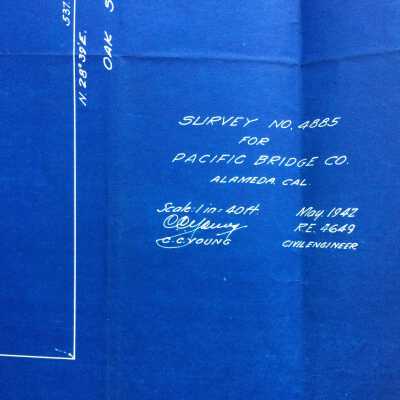 537.
N. 28°39'E.
OAK S
SURVEY NO. 4885
FOR
PACIFIC BRIDGE CO.
ALAMEDA. CAL.
Scale: 1 in = 40 ft. May 1942
C.C. Young R.E. 4649
C. C. YOUNG CIVIL ENGINEER